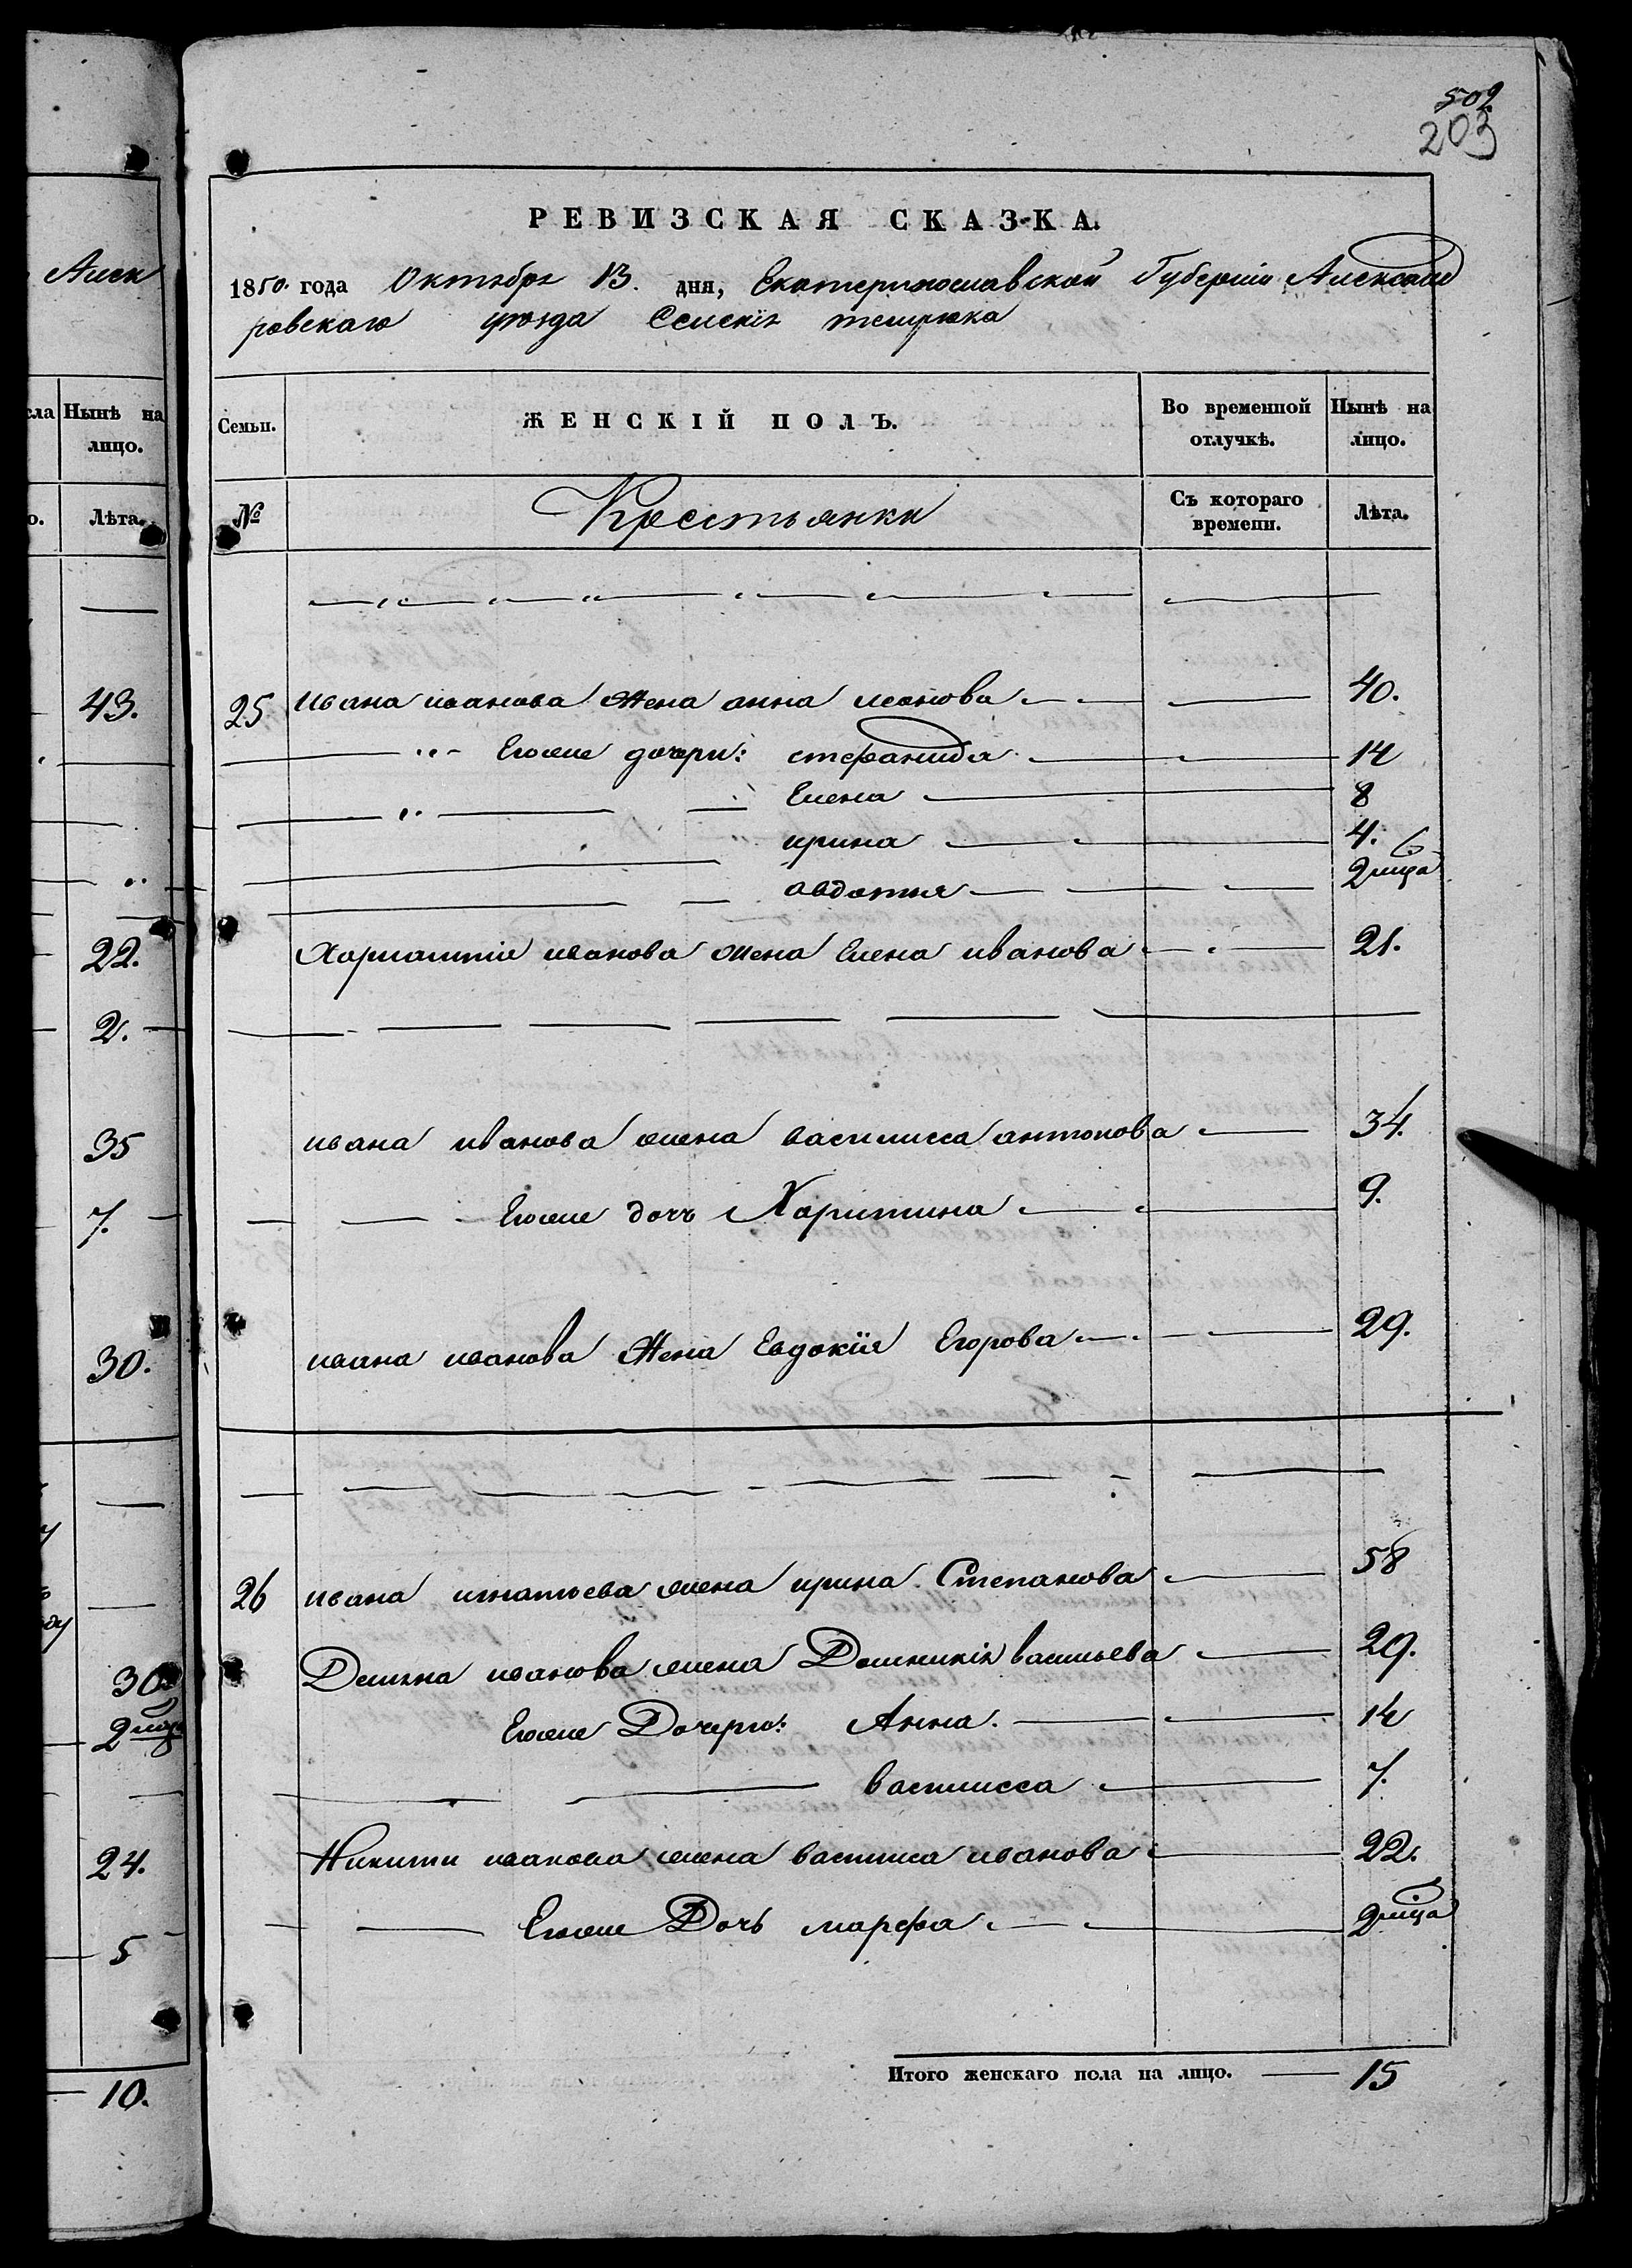 Алек
сла Нынѣ на
лицо.
о. Лѣта.
43.
22.
2.
35
7.
30.
30.
2 мца
24.
5
10.
502
203
РЕВИЗСКАЯ СКАЗКА.
1850 года Октября 13. дня, Екатеринославской Губернии Александ
ровскаго уѣзда Селенія темрюка
Семьи. ЖЕНСКІЙ ПОЛЪ. Во временной отлучкѣ. Нынѣ на лицо.
№ Крестьянки Съ котораго времени. Лѣта.
25 ивана иванова жена анна леонова 40.
Егоже дочери: стефанида 14
Елена 8
ирина 4.
авдотья 2 мца
иванова жена Елена иванова 21.
ивана иванова жена василисса антонова 34.
Егоже дочъ Харитина 9.
ивана иванова жена Евдокія Егорова 29.
26 ивана игнатьева жена ирина Степанова 58
Демяна иванова жена Домникія васильева 29.
Егоже Дочери: Анна. 14
василисса 7.
Никиты иванова жена василиса иванова 22.
Егоже Дочь марфа 2 мца
Итого женскаго пола на лицо. 15